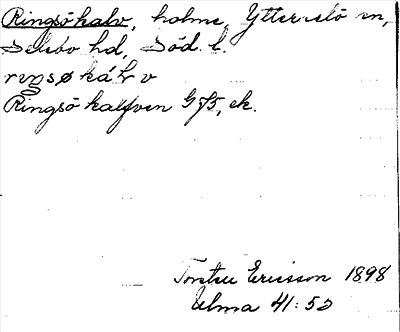 Ringsö kalv, holme, Ytterselö sn,
Selebo hd, Söd. l.
Ringsö kalfven G 75, ek.
Torsten Ericsson 1898
Ulma 41:52